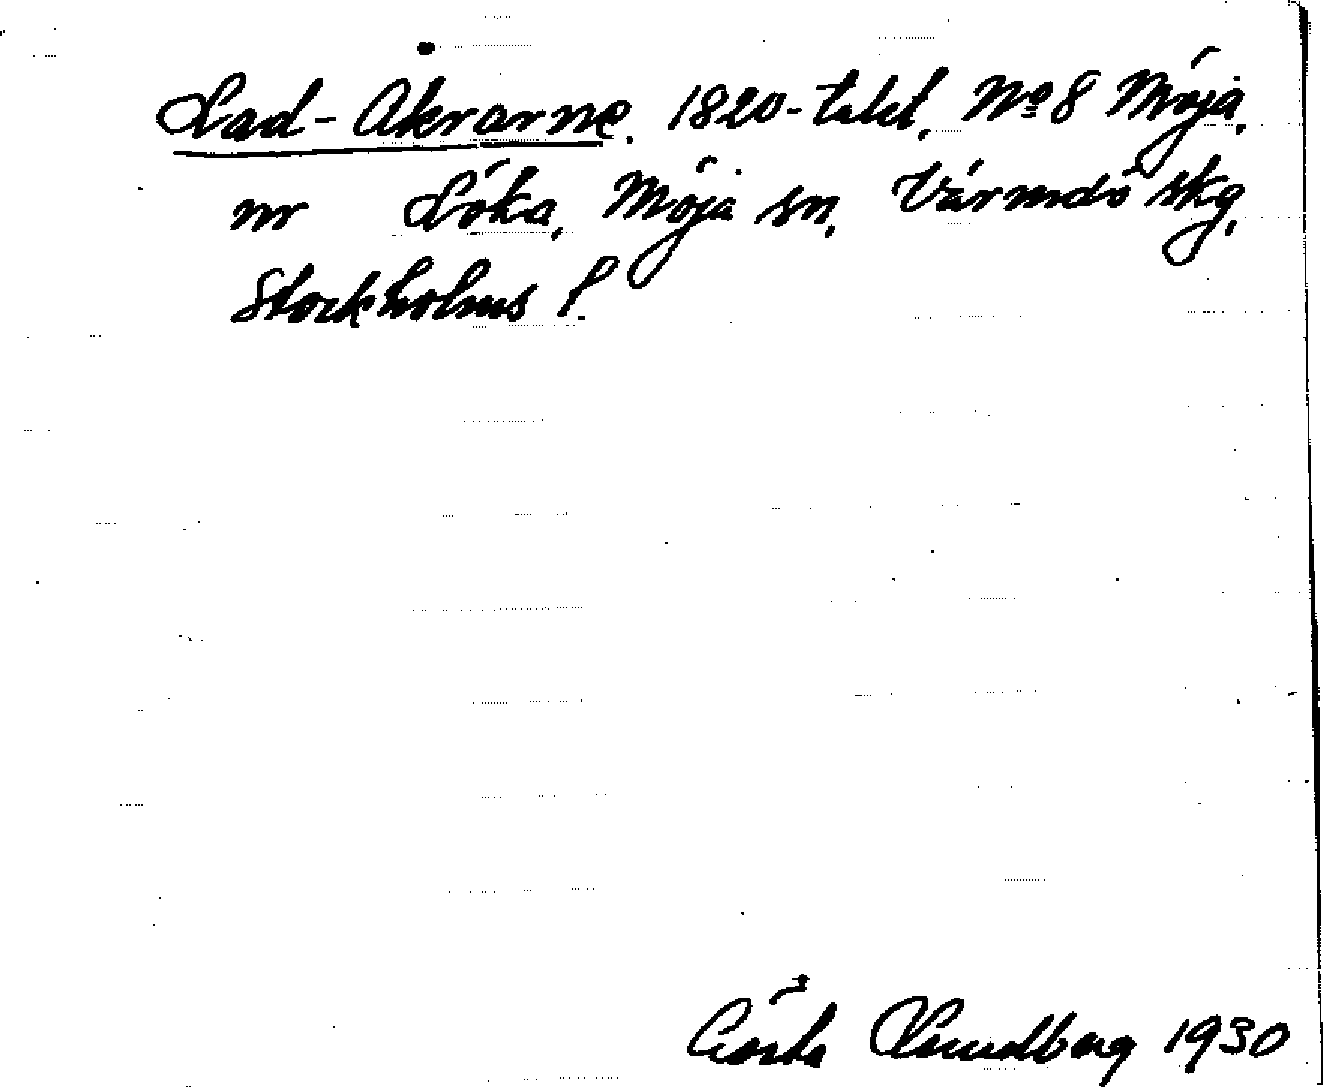 Lad-Åkrarne. 1820-talet. No 8 Möja,
nr Löka, Möja sn, Värmdö skg,
Stockholms l.
Gösta Lundberg 1930